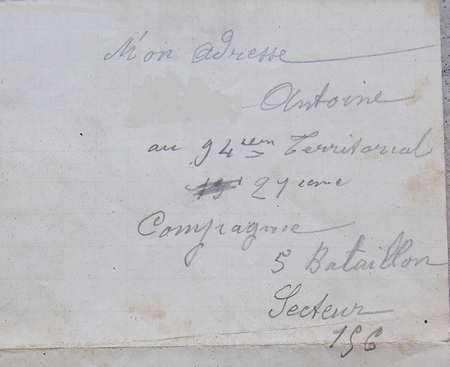 Mon adresse
Antoine
au 94ıem Territorial
27eme
Compagnie
5 Bataillon
Secteur
156